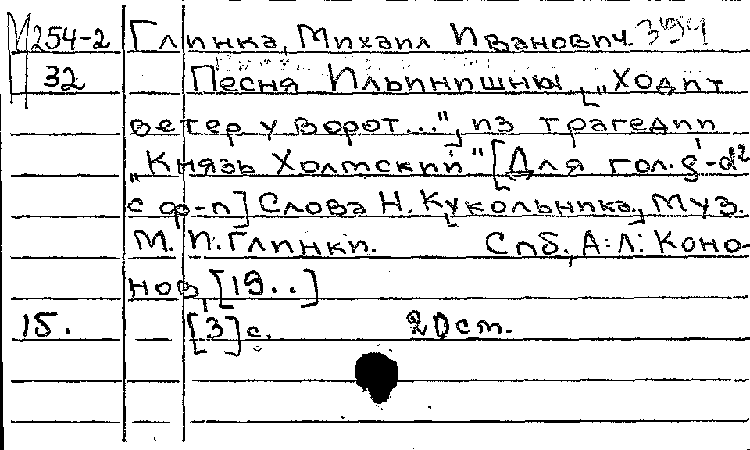 М254-2 Глинка, Михаил Иванович. 394
32 Песня Ильинишны „Ходит
ветер у ворот...", из трагедии
„Князь Холмский" [Для гол. g¹-d²
с ф-п] Слова Н. Кукольника, Муз.
М. И. Глинки. Спб., А. Л. Коно-
нов, [19..]
15. [3] с. 20 cm.